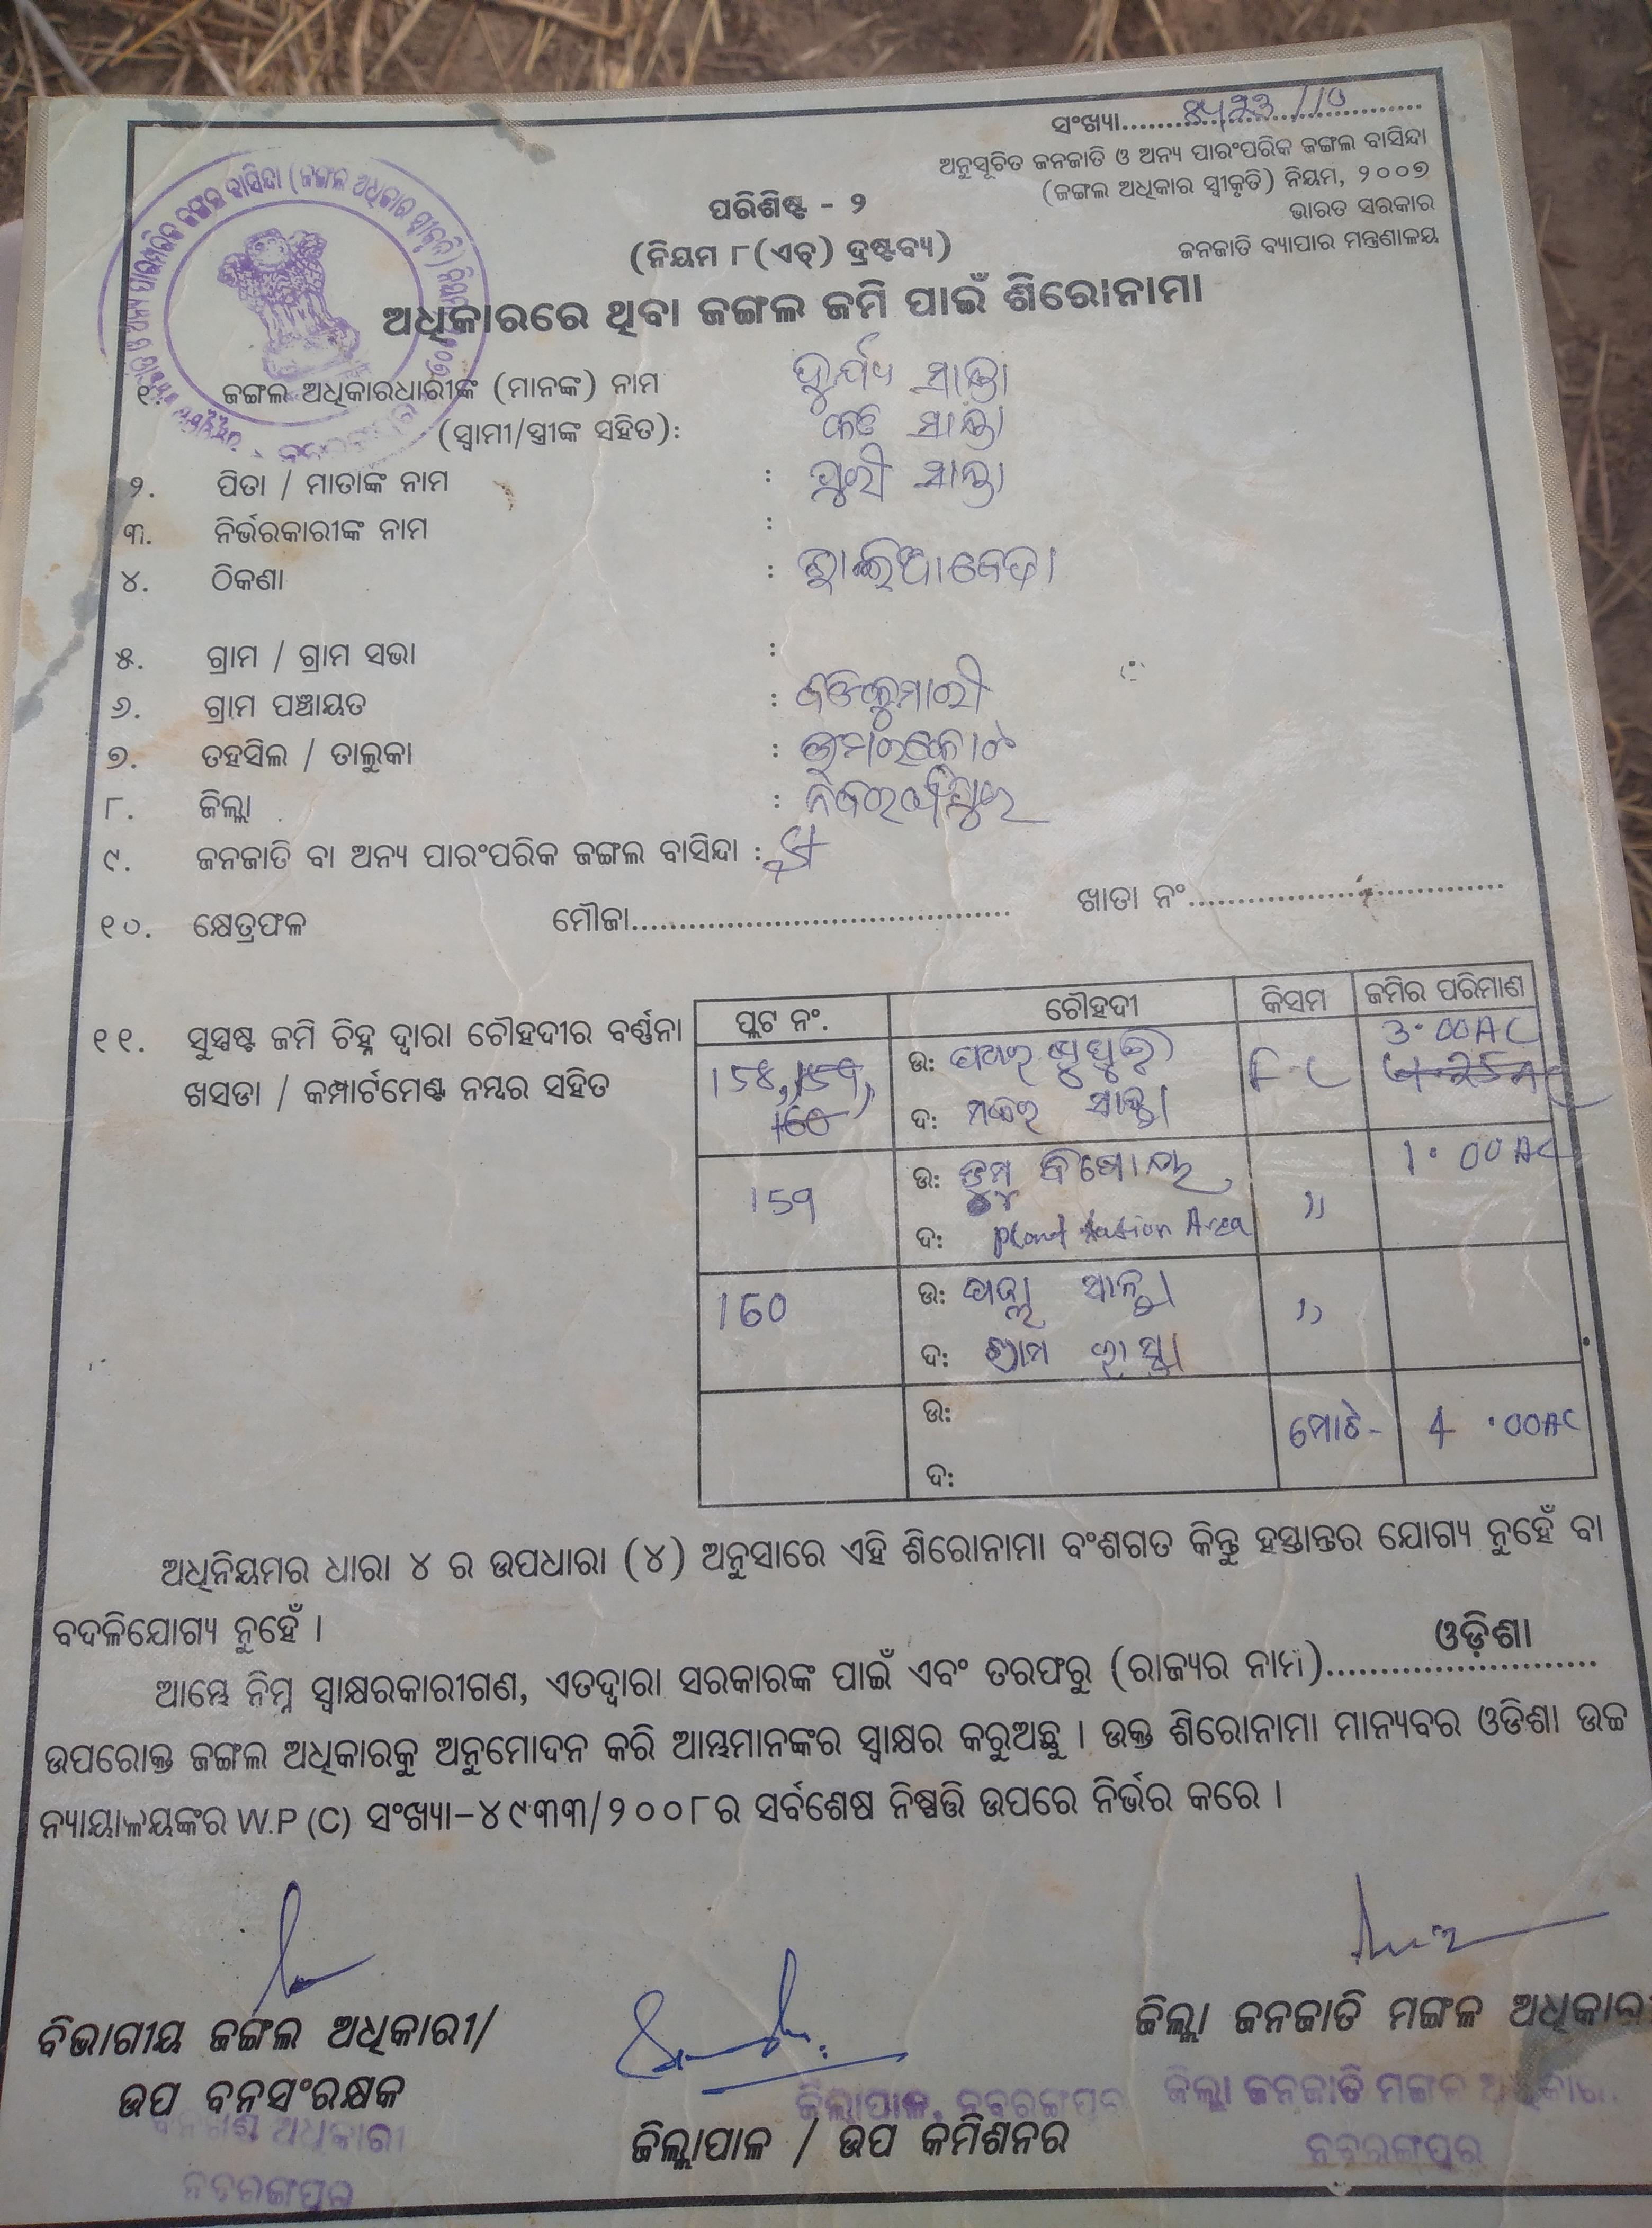 ସଂଖ୍ୟା
ଅନୁସୂଚିତ ଜନଜାତି ଓ ଅନ୍ୟ ପାରଂପରିକ ଜଙ୍ଗଲ ବାସିନ୍ଦା
(ଜଙ୍ଗଲ ଅଧିକାର ସ୍ୱୀକୃତି) ନିୟମ, ୨୦୦୭
ଭାରତ ସରକାର
ଜନଜାତି ବ୍ୟାପାର ମନ୍ତ୍ରଣାଳୟ
ପରିଶିଷ୍ଟ - ୨
(ନିୟମ ୮(ଏଚ୍) ଦ୍ରଷ୍ଟବ୍ୟ)
ଅଧିକାରରେ ଥିବା ଜଙ୍ଗଲ ଜମି ପାଇଁ ଶିରୋନାମା
୧. ଜଙ୍ଗଲ ଅଧିକାରଧାରୀଙ୍କ (ମାନଙ୍କ) ନାମ ସାନ୍ତା
(ସ୍ୱାମୀ/ସ୍ତ୍ରୀଙ୍କ ସହିତ): ସାନ୍ତା
୨. ପିତା / ମାତାଙ୍କ ନାମ : ସାନ୍ତା
୩. ନିର୍ଭରକାରୀଙ୍କ ନାମ :
୪. ଠିକଣା :
୫. ଗ୍ରାମ / ଗ୍ରାମ ସଭା :
୬. ଗ୍ରାମ ପଞ୍ଚାୟତ :
୭. ତହସିଲ / ତାଲୁକା : ଉମରକୋଟ
୮. ଜିଲ୍ଲା : ନବରଙ୍ଗପୁର
୯. ଜନଜାତି ବା ଅନ୍ୟ ପାରଂପରିକ ଜଙ୍ଗଲ ବାସିନ୍ଦା :
୧୦. କ୍ଷେତ୍ରଫଳ ମୌଜା ଖାତା ନଂ
୧୧. ସୁସ୍ପଷ୍ଟ ଜମି ଚିହ୍ନ ଦ୍ୱାରା ଚୌହଦୀର ବର୍ଣ୍ଣନା
ଖସଡା / କମ୍ପାର୍ଟମେଣ୍ଟ ନମ୍ବର ସହିତ
ପ୍ଲଟ ନଂ. ଚୌହଦୀ କିସମ ଜମିର ପରିମାଣ
ଉ: 3.00AC
ଦ: ସାନ୍ତା
159 ଉ: 1.00 AC
ଦ: Plantation Area "
160 ଉ: ସାନ୍ତା "
ଦ: ଗ୍ରାମ ରାସ୍ତା
ଉ: ମୋଟ- 4.00AC
ଦ:
ଅଧିନିୟମର ଧାରା ୪ ର ଉପଧାରା (୪) ଅନୁସାରେ ଏହି ଶିରୋନାମା ବଂଶଗତ କିନ୍ତୁ ହସ୍ତାନ୍ତର ଯୋଗ୍ୟ ନୁହେଁ ବା
ବଦଳିଯୋଗ୍ୟ ନୁହେଁ ।
ଆମ୍ଭେ ନିମ୍ନ ସ୍ୱାକ୍ଷରକାରୀଗଣ, ଏତଦ୍ୱାରା ସରକାରଙ୍କ ପାଇଁ ଏବଂ ତରଫରୁ (ରାଜ୍ୟର ନାମ) ଓଡ଼ିଶା
ଉପରୋକ୍ତ ଜଙ୍ଗଲ ଅଧିକାରକୁ ଅନୁମୋଦନ କରି ଆମ୍ଭମାନଙ୍କର ସ୍ୱାକ୍ଷର କରୁଅଛୁ । ଉକ୍ତ ଶିରୋନାମା ମାନ୍ୟବର ଓଡିଶା ଉଚ୍ଚ
ନ୍ୟାୟାଳୟଙ୍କର W.P (C) ସଂଖ୍ୟା-୪୯୩୩/୨୦୦୮ର ସର୍ବଶେଷ ନିଷ୍ପତ୍ତି ଉପରେ ନିର୍ଭର କରେ ।
ବିଭାଗୀୟ ଜଙ୍ଗଲ ଅଧିକାରୀ/
ଉପ ବନସଂରକ୍ଷକ
ବନଖଣ୍ଡ ଅଧିକାରୀ
ନବରଙ୍ଗପୁର
ଜିଲ୍ଲାପାଳ, ନବରଙ୍ଗପୁର
ଜିଲ୍ଲାପାଳ / ଉପ କମିଶନର
ଜିଲ୍ଲା ଜନଜାତି ମଙ୍ଗଳ ଅଧିକାରୀ
ଜିଲ୍ଲା ଜନଜାତି ମଙ୍ଗଳ ଅଧିକାରୀ
ନବରଙ୍ଗପୁର